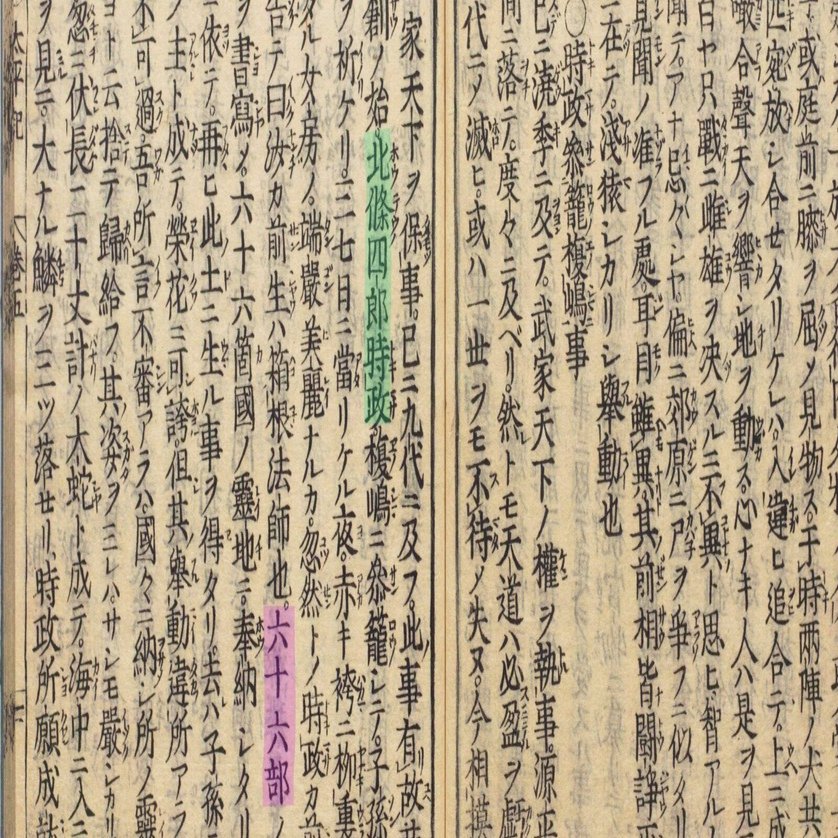 或庭前ニ膝ヲ屈ノ見物ス。于時両陣ノ犬共
匹宛放シ合セタリケレハ。入違ヒ追合テ。上ニ成
噉合聲天ヲ響シ地ヲ動ス。心ナキ人ハ是ヲ見
白ヤ只戰ニ雌雄ヲ决スルニ不異ト思ヒ。智アル
聞テ。アナ忌々シヤ。偏ニ郊原ニ尸ヲ爭フニ似タリ
見聞ノ准フル處耳目雖異。其前相皆鬪諍
ニ在テ。淺猿シカリシ擧動也
〇時政參籠榎嶋事
已ニ澆季ニ及テ。武家天下ノ權ヲ執事。源平
間ニ落テ。度々ニ及ベリ。然トモ天道ハ必盈ヲ虧
代ニノ滅ヒ。或ハ一世ヲモ不待ノ失ヌ。今相摸
家天下ヲ保事。已ニ九代ニ及フ。此事有故
創ノ始北條四郎時政榎嶋ニ參籠シテ。子孫
ヲ祈ケリ。三七日ニ當リケル夜。赤キ袴ニ柳裏
タル女房ノ。端嚴美麗ナルカ。忽然トノ時政カ前
告テ曰汝カ前生ハ箱根法師也。六十六部ノ
ヲ書寫ノ。六十六箇國ノ靈地ニ。奉納シタリ
ニ依テ。再ヒ此土ニ生ル事ヲ得タリ。去ハ子孫
ノ主ト成テ。榮花ニ可誇。但其擧動違所アラ
不可過。吾所言不審アラハ。國々ニ納シ所ノ靈
ヨト云捨テ歸給フ。其姿ヲミレハ。サシモ嚴シカリ
忽ニ伏長二十丈計ノ大蛇ト成テ。海中ニ入
ヲ見ニ。大ナル鱗ヲ三ツ落セリ。時政所願成
太平記 卷五